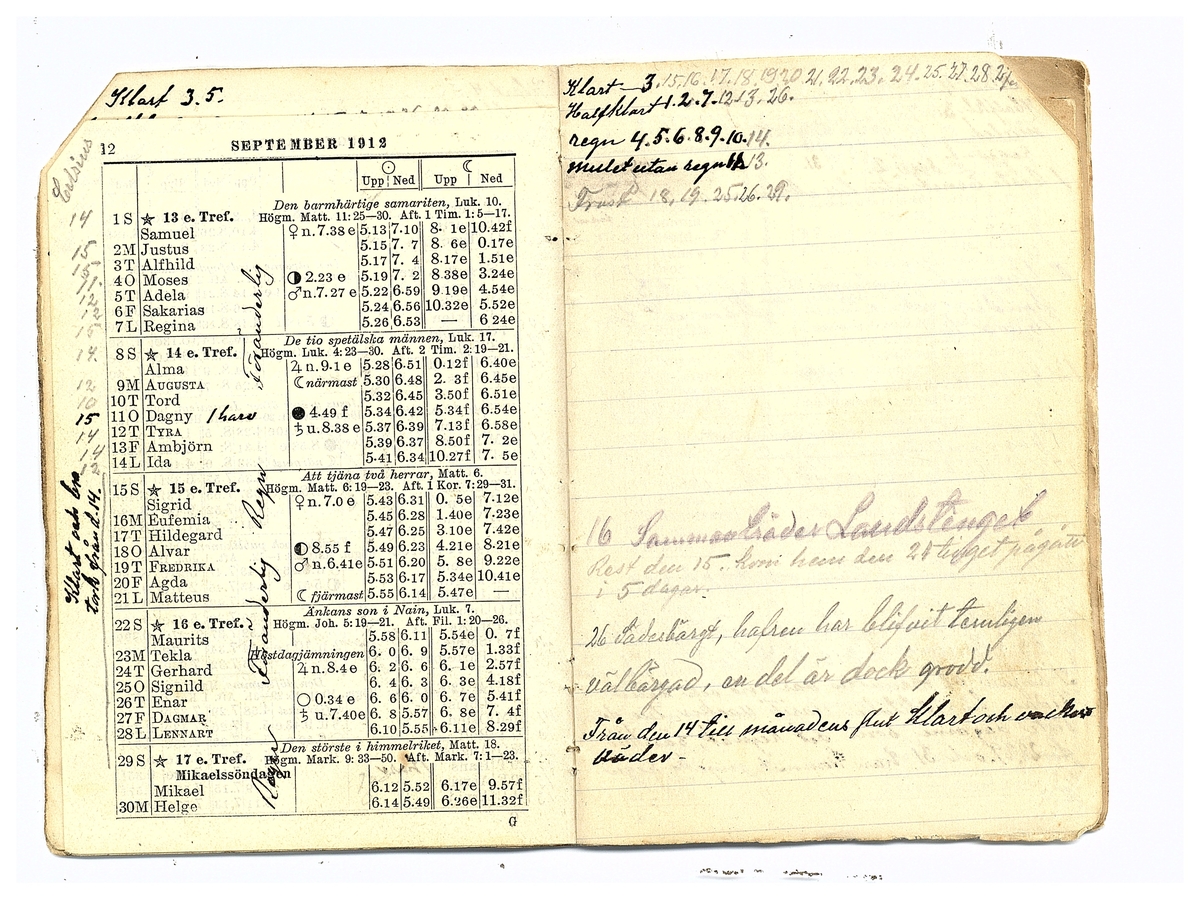 Klart 3.5.
12 SEPTEMBER 1912
☉ ☾
Upp Ned Upp Ned
Celsius
Den barmhärtige samariten, Luk. 10.
14 1 S ★ 13 e. Tref. Högm. Matt. 11: 25—30. Aft. 1 Tim. 1: 5—17.
Samuel ♀ n. 7.38 e 5.13 7.10 8. 1e 10.42f
15 2 M Justus 5.15 7. 7 8. 6e 0.17e
15 3 T Alfhild 5.17 7. 4 8.17e 1.51e
11. 4 O Moses ◑ 2.23 e 5.19 7. 2 8.38e 3.24e
12 5 T Adela ♂ n. 7. 27 e 5.22 6.59 9.19e 4.54e
12 6 F Sakarias 5.24 6.56 10.32e 5.52e
15 7 L Regina 5.26 6.53 — 6 24e
Föränderlig
De tio spetälska männen, Luk. 17.
14. 8 S ★ 14 e. Tref. Högm. Luk. 4: 23—30. Aft. 2 Tim. 2: 19—21.
Alma ♃ n. 9.1 e 5.28 6.51 0.12f 6.40e
12 9 M AUGUSTA ☾ närmast 5.30 6.48 2. 3f 6.45e
10 10 T Tord 5.32 6.45 3.50f 6.51e
15 11 O Dagny ● 4.49 f 5.34 6.42 5.34f 6.54e
14 12 T TYRA ♄ u. 8.38 e 5.37 6.39 7.13f 6.58e
14 13 F Ambjörn 5.39 6.37 8.50f 7. 2e
12 14 L Ida 5.41 6.34 10.27f 7. 5e
Regn
Att tjäna två herrar, Matt. 6.
15 S ★ 15 e. Tref. Högm. Matt. 6: 19—23. Aft. 1 Kor. 7: 29—31.
Sigrid ♀ n. 7.0 e 5.43 6.31 0. 5e 7.12e
16 M Eufemia 5.45 6.28 1.40e 7.23e
17 T Hildegard 5.47 6.25 3.10e 7.42e
18 O Alvar ◐ 8.55 f 5.49 6.23 4.21e 8.21e
19 T FREDRIKA ♂ n. 6.41e 5.51 6.20 5. 8e 9.22e
20 F Agda 5.53 6.17 5.34e 10.41e
21 L Matteus ☾ fjärmast 5.55 6.14 5.47e —
Klart och bra
tork från d. 14.
Föränderlig
Änkans son i Nain, Luk. 7.
22 S ★ 16 e. Tref. Högm. Joh. 5: 19—21. Aft. Fil. 1: 20—26.
Maurits 5.58 6.11 5.54e 0. 7f
23 M Tekla Höstdagjämningen 6. 0 6. 9 5.57e 1.33f
24 T Gerhard ♃ n. 8.4e 6. 2 6. 6 6. 1e 2.57f
25 O Signild 6. 4 6. 3 6. 3e 4.18f
26 T Enar ○ 0.34 e 6. 6 6. 0 6. 7e 5.41f
27 F DAGMAR ♄ u. 7.40e 6. 8 5.57 6. 8e 7. 4f
28 L LENNART 6.10 5.55 6.11e 8.29f
Regn
Den störste i himmelriket, Matt. 18.
29 S ★ 17 e. Tref. Högm. Mark. 9: 33—50. Aft. Mark. 7: 1—23.
Mikaelssöndagen
Mikael 6.12 5.52 6.17e 9.57f
30 M Helge 6.14 5.49 6.26e 11.32f
G
Klart — 3. 15. 16. 17. 18. 19 20 21. 22. 23. 24. 25. 27. 28. 29
Halfklart 1. 2. 7. 12 13. 26.
regn 4. 5. 6. 8. 9. 10. 14.
mulet utan regn 11 13.
Frost 18, 19. 25 26. 29.
16 Sammanträder Landstinget
Rest den 15. kom hem den 21 tinget pågått
i 5 dagar.
26 Sädesbärgt, hafren har blifvit temligen
välbärgad, en del är dock grodd.
Från den 14 till månadens slut Klart och vackert
väder —